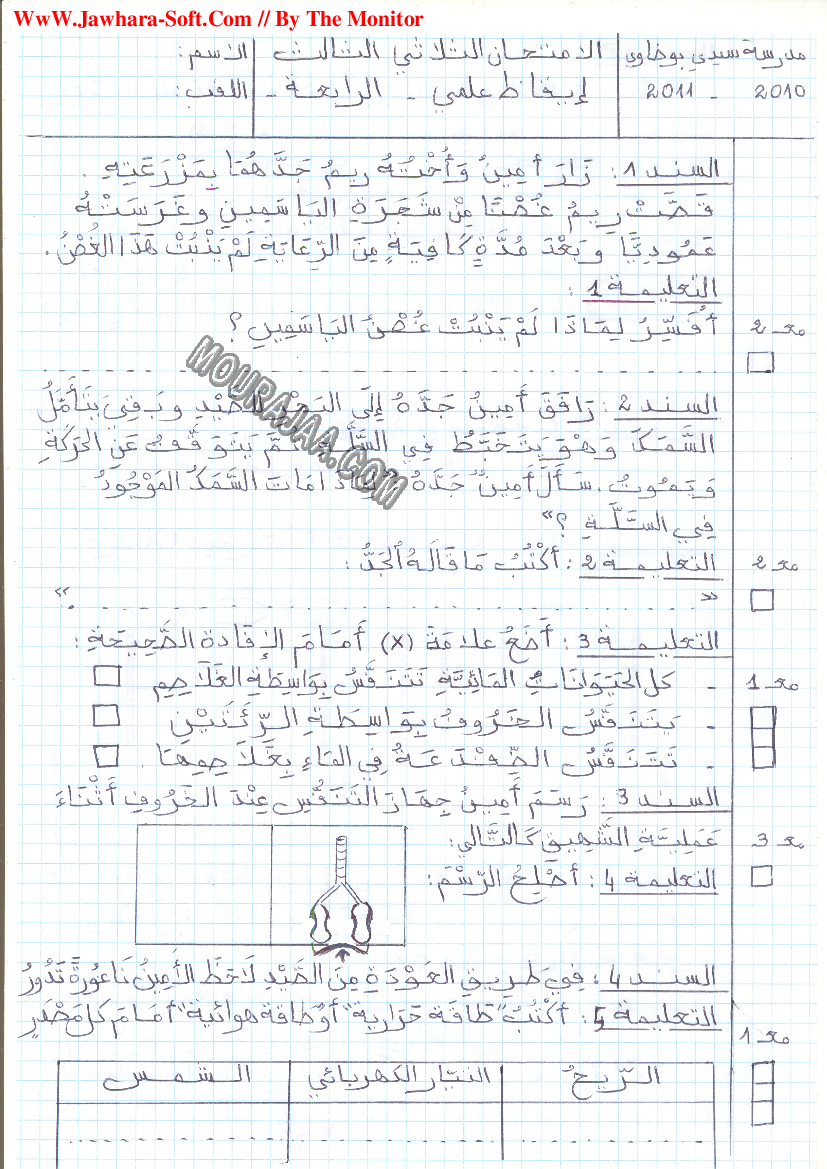 WwW.Jawhara-Soft.Com // By The Monitor
مدرسة سيدي بوخاوي
2010 - 2011
الامتحان الثلاثي الثالث
إيقاظ علمي - الرابعة -
الاسم:
اللقب:
السند 1: زَارَ أمِينُ وَأُخْتُهُ رِيمُ جَدَّهُمَا بِمَزْرَعَتِهِ.
قَصَّتْ رِيمُ غُصْنًا مِنْ شَجَرَةِ اليَاسَمِينِ وَغَرَسَتْهُ
عَمُودِيًّا وَبَعْدَ مُدَّةٍ كَافِيَةٍ مِنَ الرِّعَايَةِ لَمْ يَنْبُتْ هَذَا الغُصْنُ.
التعليمة 1:
أُفَسِّرُ لِمَاذَا لَمْ يَنْبُتْ غُصْنُ اليَاسَمِينِ؟
معـ 2
MOURAJAA.COM
السند 2: رَافَقَ أَمِينُ جَدَّهُ إِلَى البَحْرِ لِلصَّيْدِ وبَقِيَ يَتَأَمَّلُ
السَّمَكَ وَهْوَ يَتَخَبَّطُ فِي السَّلَّةِ ثُمَّ يَتَوَقَّفُ عَنِ الحَرَكَةِ
وَيَمُوتُ. سَأَلَ أَمِينُ جَدَّهُ: "لِمَاذَا مَاتَ السَّمَكُ المَوْجُودُ
فِي السَّلَّةِ؟"
التعليمة 2: أَكْتُبُ مَا قَالَهُ الجَدُّ:
معـ 2
" . "
التعليمة 3: أَضَعُ عَلامَةَ (X) أَمَامَ الإِفَادَةِ الصَّحِيحَةِ:
- كل الحَيَوَانَاتِ المَائِيَّةِ تَتَنَفَّسُ بِوَاسِطَةِ الغَلَاصِمِ
معـ 1
- يَتَنَفَّسُ الخَرُوفُ بِوَاسِطَةِ الرِّئَتَيْنِ
- تَتَنَفَّسُ الضِّفْدَعَةُ فِي المَاءِ بِغَلَاصِمِهَا.
السند 3: رَسَمَ أَمِينُ جِهَازَ التَّنَفُّسِ عِنْدَ الخَرُوفِ أَثْنَاءَ
عَمَلِيَّةِ الشَّهِيقِ كَالتَّالِي:
معـ 3
التعليمة 4: أُصْلِحُ الرَّسْمَ:
السند 4: فِي طَرِيقِ العَوْدَةِ مِنَ الصَّيْدِ لَاحَظَ الأَمِينُ نَاعُورَةً تَدُورُ
التعليمة 5: أَكْتُبُ "طَاقَة حَرَارِية" أَوْ "طَاقة هوائية" أَمَامَ كل مَصْدَرٍ
معـ 1
الرّيحُ
التيّار الكهربائي
الشمس